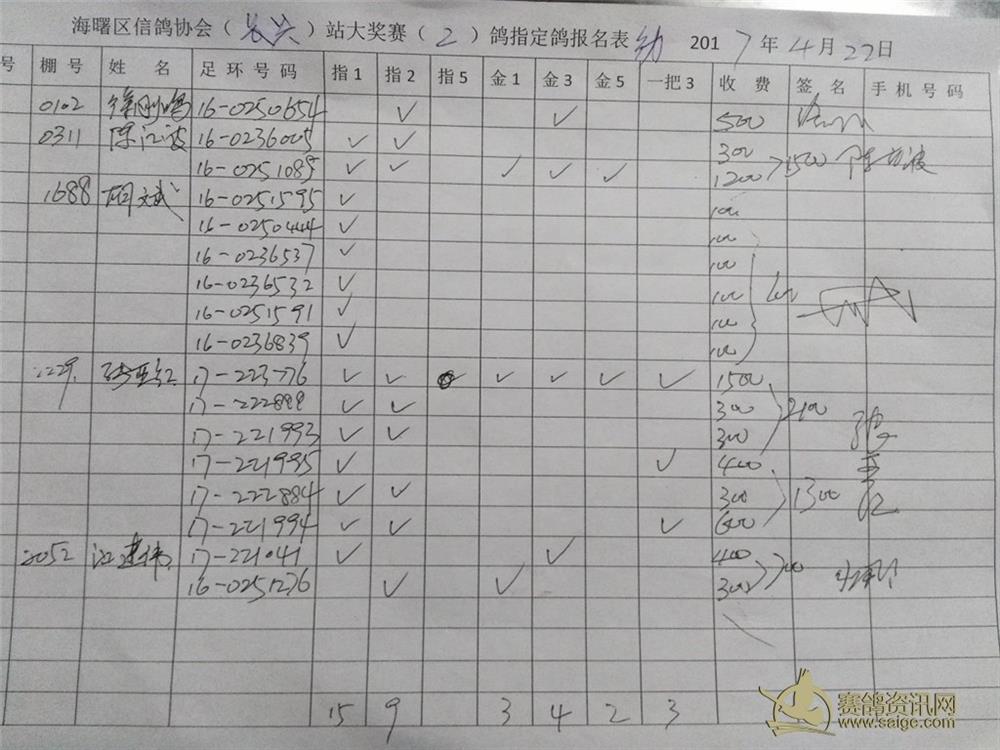 海曙区信鸽协会（长兴）站大奖赛（2）鸽指定鸽报名表 幼 2017年4月22日
号 棚号 姓名 足环号码 指1 指2 指5 金1 金3 金5 一把3 收费 签名 手机号码
0102 徐刚鸣 16-0250654 ✓ ✓ 500
0311 陈江波 16-0236005 ✓ ✓ 300
16-0251089 ✓ ✓ ✓ ✓ ✓ 1200 1500 陈江波
1688 胡文斌 16-0251595 ✓ 100
16-0250444 ✓ 100
16-0236537 ✓ 100
16-0236532 ✓ 100
16-0251591 ✓ 100
16-0236839 ✓ 100
1229 张亚红 17-223776 ✓ ✓ ✓ ✓ ✓ ✓ 1500
17-222899 ✓ ✓ 300 2100
17-221993 ✓ ✓ 300 张
17-221995 ✓ ✓ 400 亚
17-222884 ✓ ✓ 300 1300 红
17-221994 ✓ ✓ ✓ 600
2052 江建伟 17-221041 ✓ ✓ 400
16-0251276 ✓ ✓ 300 700
15 9 3 4 2 3
赛鸽资讯网
www.saige.com